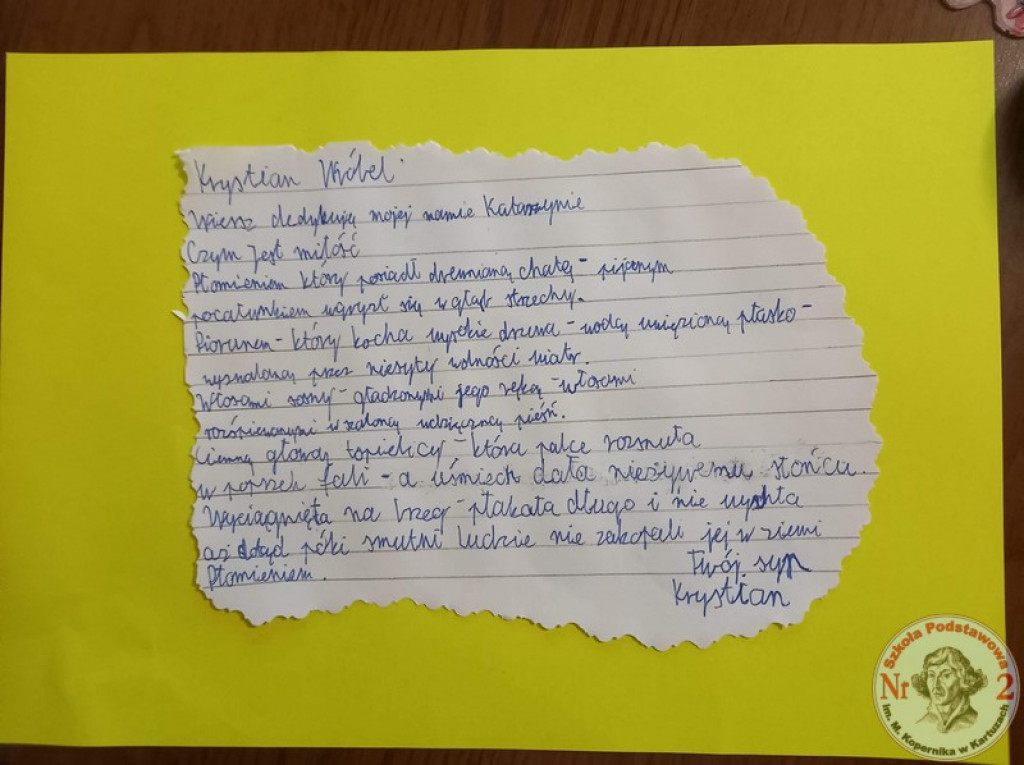 Krystian Wróbel
Wiersz dedykuję mojej mamie Katarzynie
Czym Jest miłość
Płomieniem który posiadł drewnianą chatę - pijanym
pocałunkiem wgryzł się w głąb strzechy.
Piorunem - który kocha wysokie drzewa - wodą uwięzioną płasko -
wyzwaloną przez niesyty wolności wiatr.
Włosami sosny - gładzonymi jego ręką - włosami
rozśpiewanymi w szaloną wdzięczną pieśń.
Ciemną głową topielicy - która palce rozsnuła
w poprzek fali - a uśmiech dała nieżywemu słońcu.
Wyciągnięta na brzeg - płakała długo i nie wyschła
aż dotąd póki smutni ludzie nie zakopali jej w ziemi
Płomieniem.
Twój syn
Krystian
Szkoła Podstawowa
Nr 2
im. M. Kopernika w Kartuzach